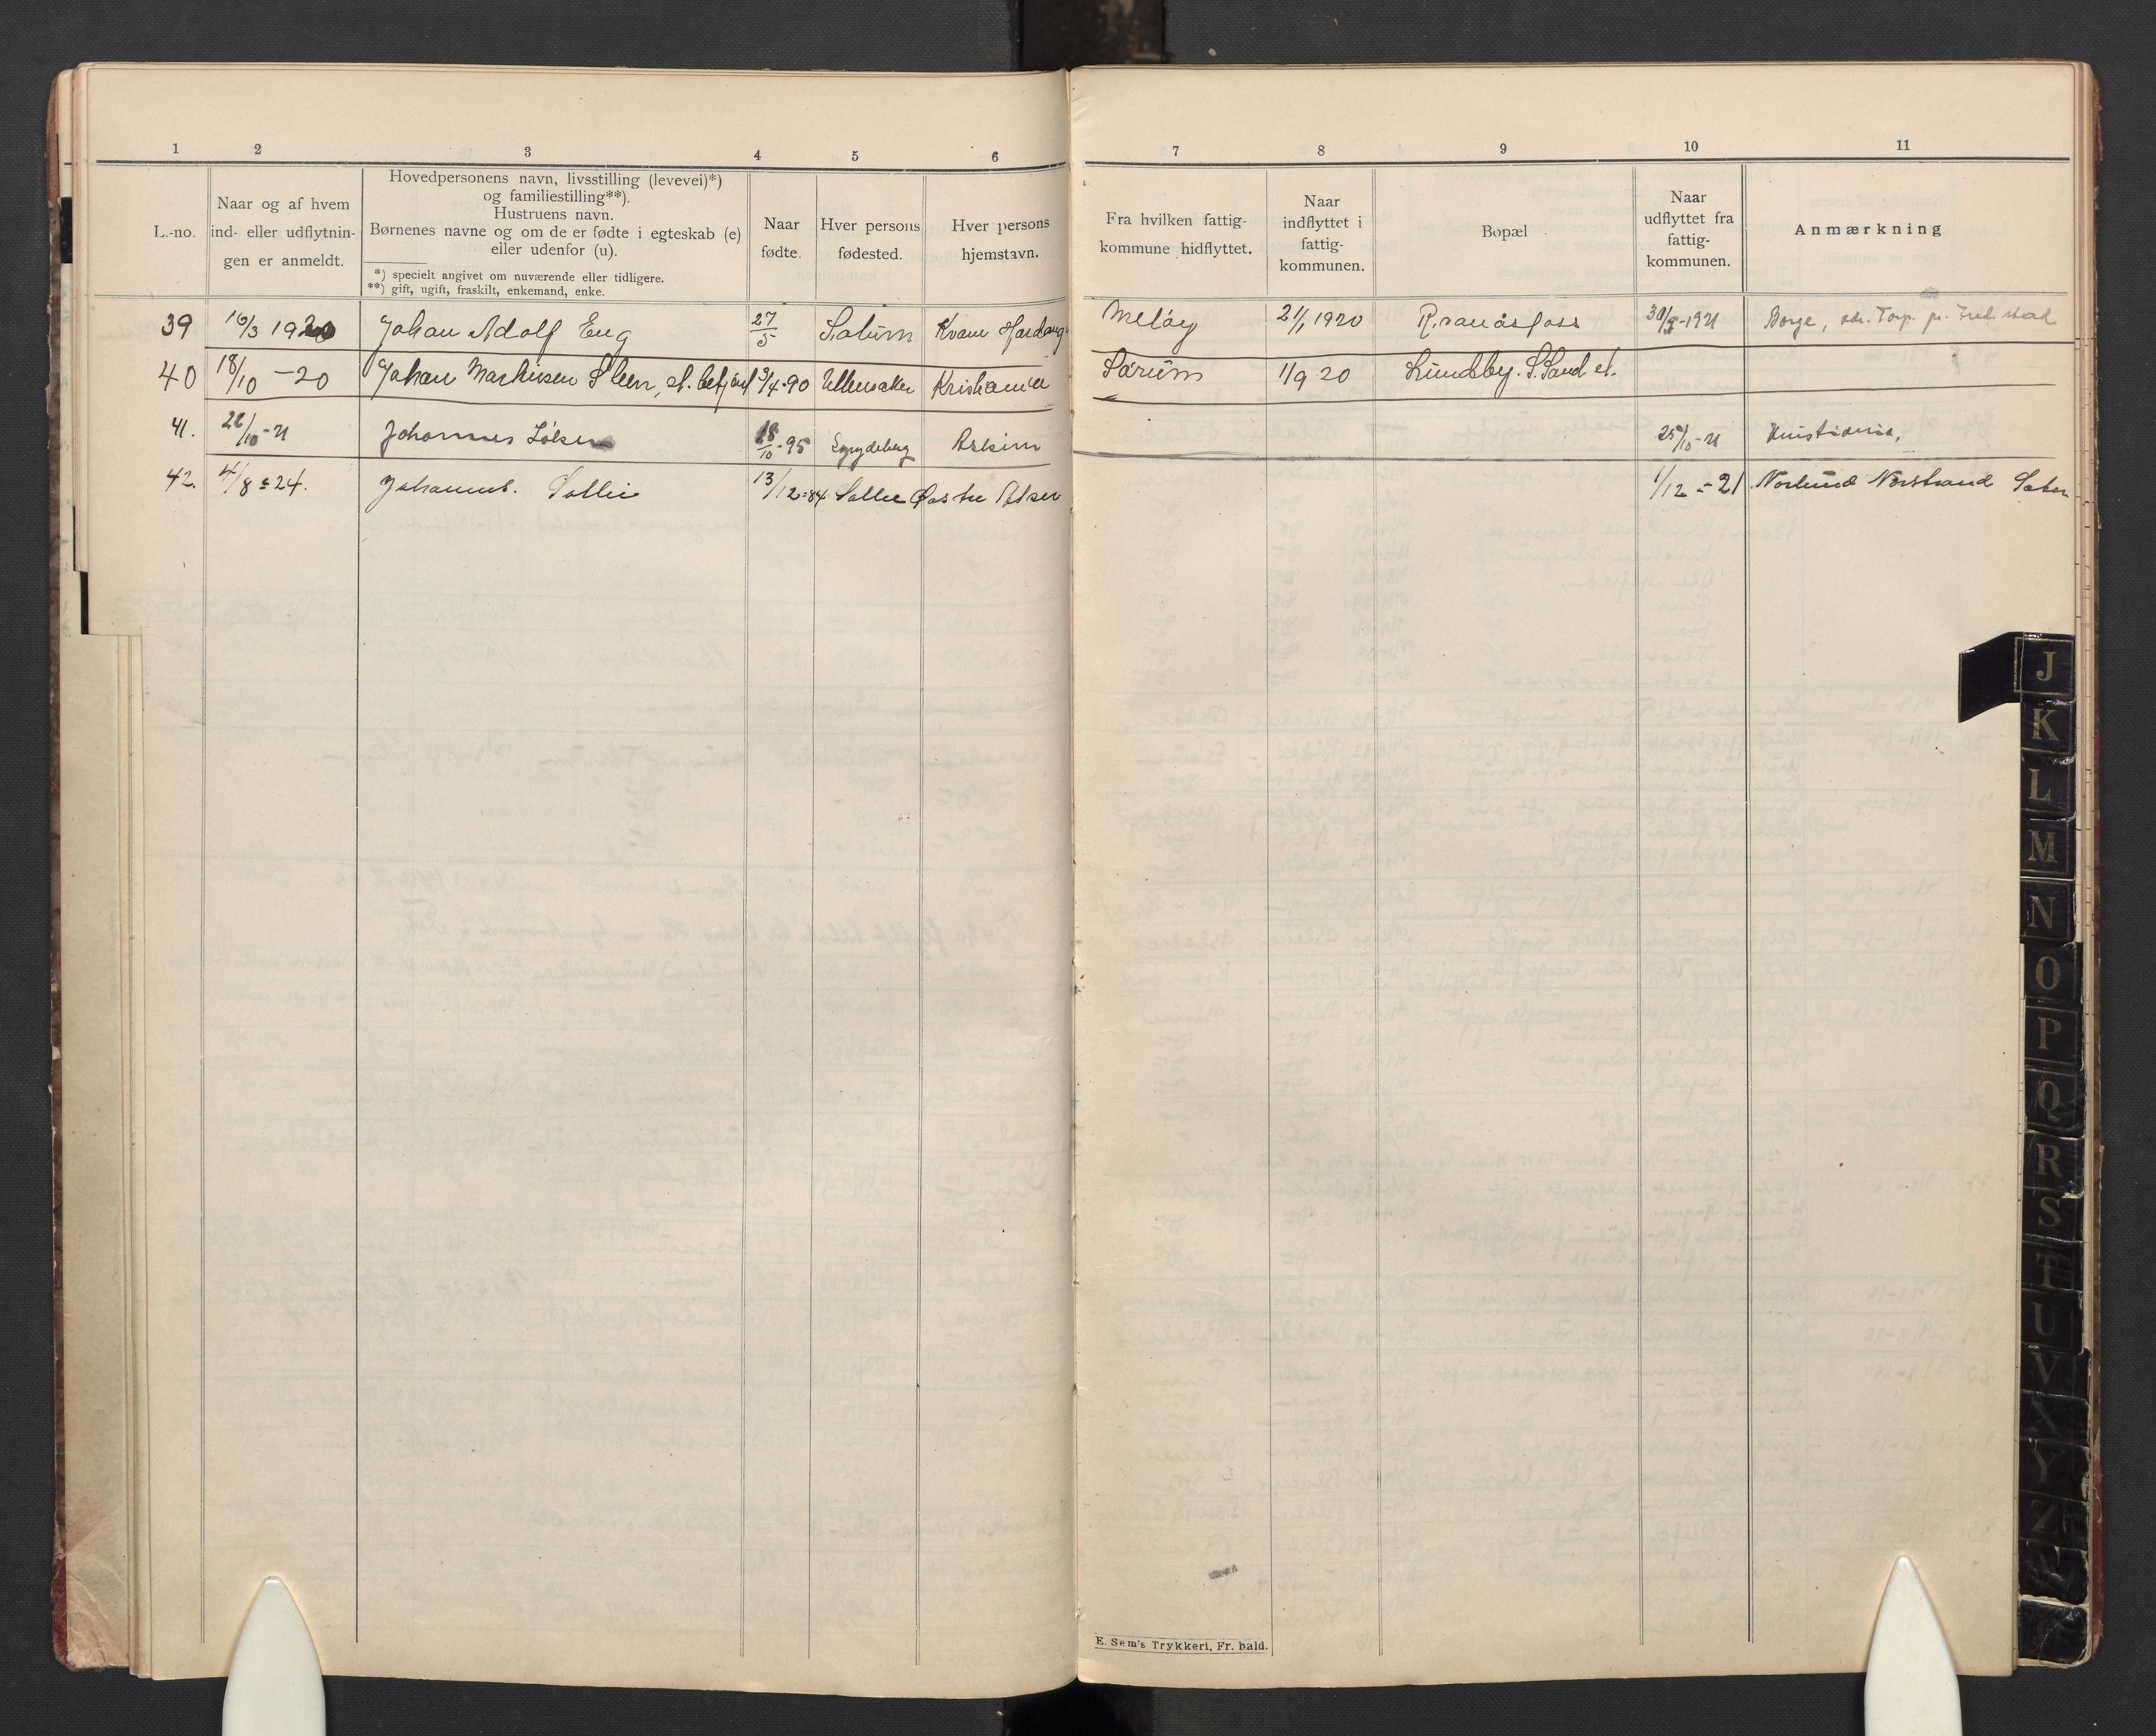 1 2 3 4 5 6 7 8 9 10 11
L.-no.
Naar og af hvem
ind- eller udflytnin-
gen er anmeldt.
Hovedpersonens navn, livsstilling (levevei)*)
og familiestilling**).
Hustruens navn.
Børnenes navne og om de er fødte i egteskab (e)
eller udenfor (u).
*) specielt angivet om nuværende eller tidligere.
**) gift, ugift, fraskilt, enkemand, enke.
Naar
fødte.
Hver persons
fødested.
Hver persons
hjemstavn.
Fra hvilken fattig-
kommune hidflyttet.
Naar
indflyttet i
fattig-
kommunen.
Bopæl
Naar
udflyttet fra
fattig-
kommunen.
Anmærkning
39 16/3 1920 Johan Adolf Eng 27/5 Solum Kvam Hardang Meløy 21/1 1920 Rånåsfoss 30/5-1921 Borge, adr. Torp pr. Fredrikstad
40 18/10 -20 Johan Martinsen Steen, st. betjent 3/4-90 Ullensaker Kristiania Sørum 1/9 20 Lundby. S. Sand st.
41. 26/10-21 Johannes 18/10-95 Spydeberg Askim 25/10-21 Kristiania,
42. 4/8=24. Johannes. Sollie 13/12=84 Sollie Østre Aker 1/12=21 Norlund Norstrand
E. Sem's Trykkeri, Fr. hald.
J
K
L
M
N
O
P
Q
R
S
T
U
V
X
Y
Z